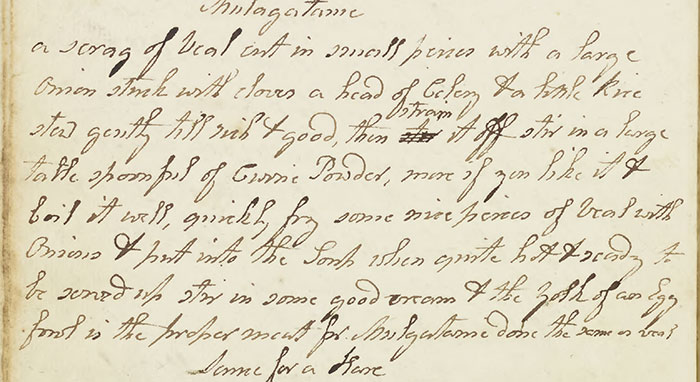 Mulagatame
a scrag of Veal cut in small peices with a large
Onion stuck with cloves a head of Celery & a little Rice
stew gently till rich & good, then strain it off stir in a large
table spoonful of Currie Powder, more if you like it &
boil it well, quickly fry some nice peices of Veal with
Onions & put into the Soup when quite hot & ready to
be served up stir in some good cream & the Yolk of an Egg
fowl is the proper meat for Mulgatame done the same as veal
Same for a Hare